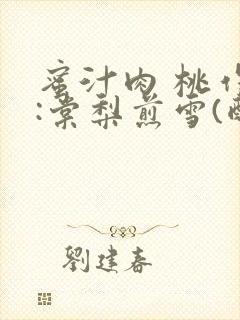 蜜汁肉桃作
:棠梨煎雪(酸
劉建春